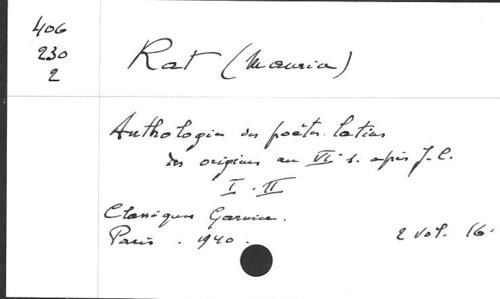 406
230
2
Rat (Maurice)
Anthologie des poètes latins
des origines au VIe s. après J.C.
I. II
Classiques Garnier.
Paris. 1940.
2 vol. 16.